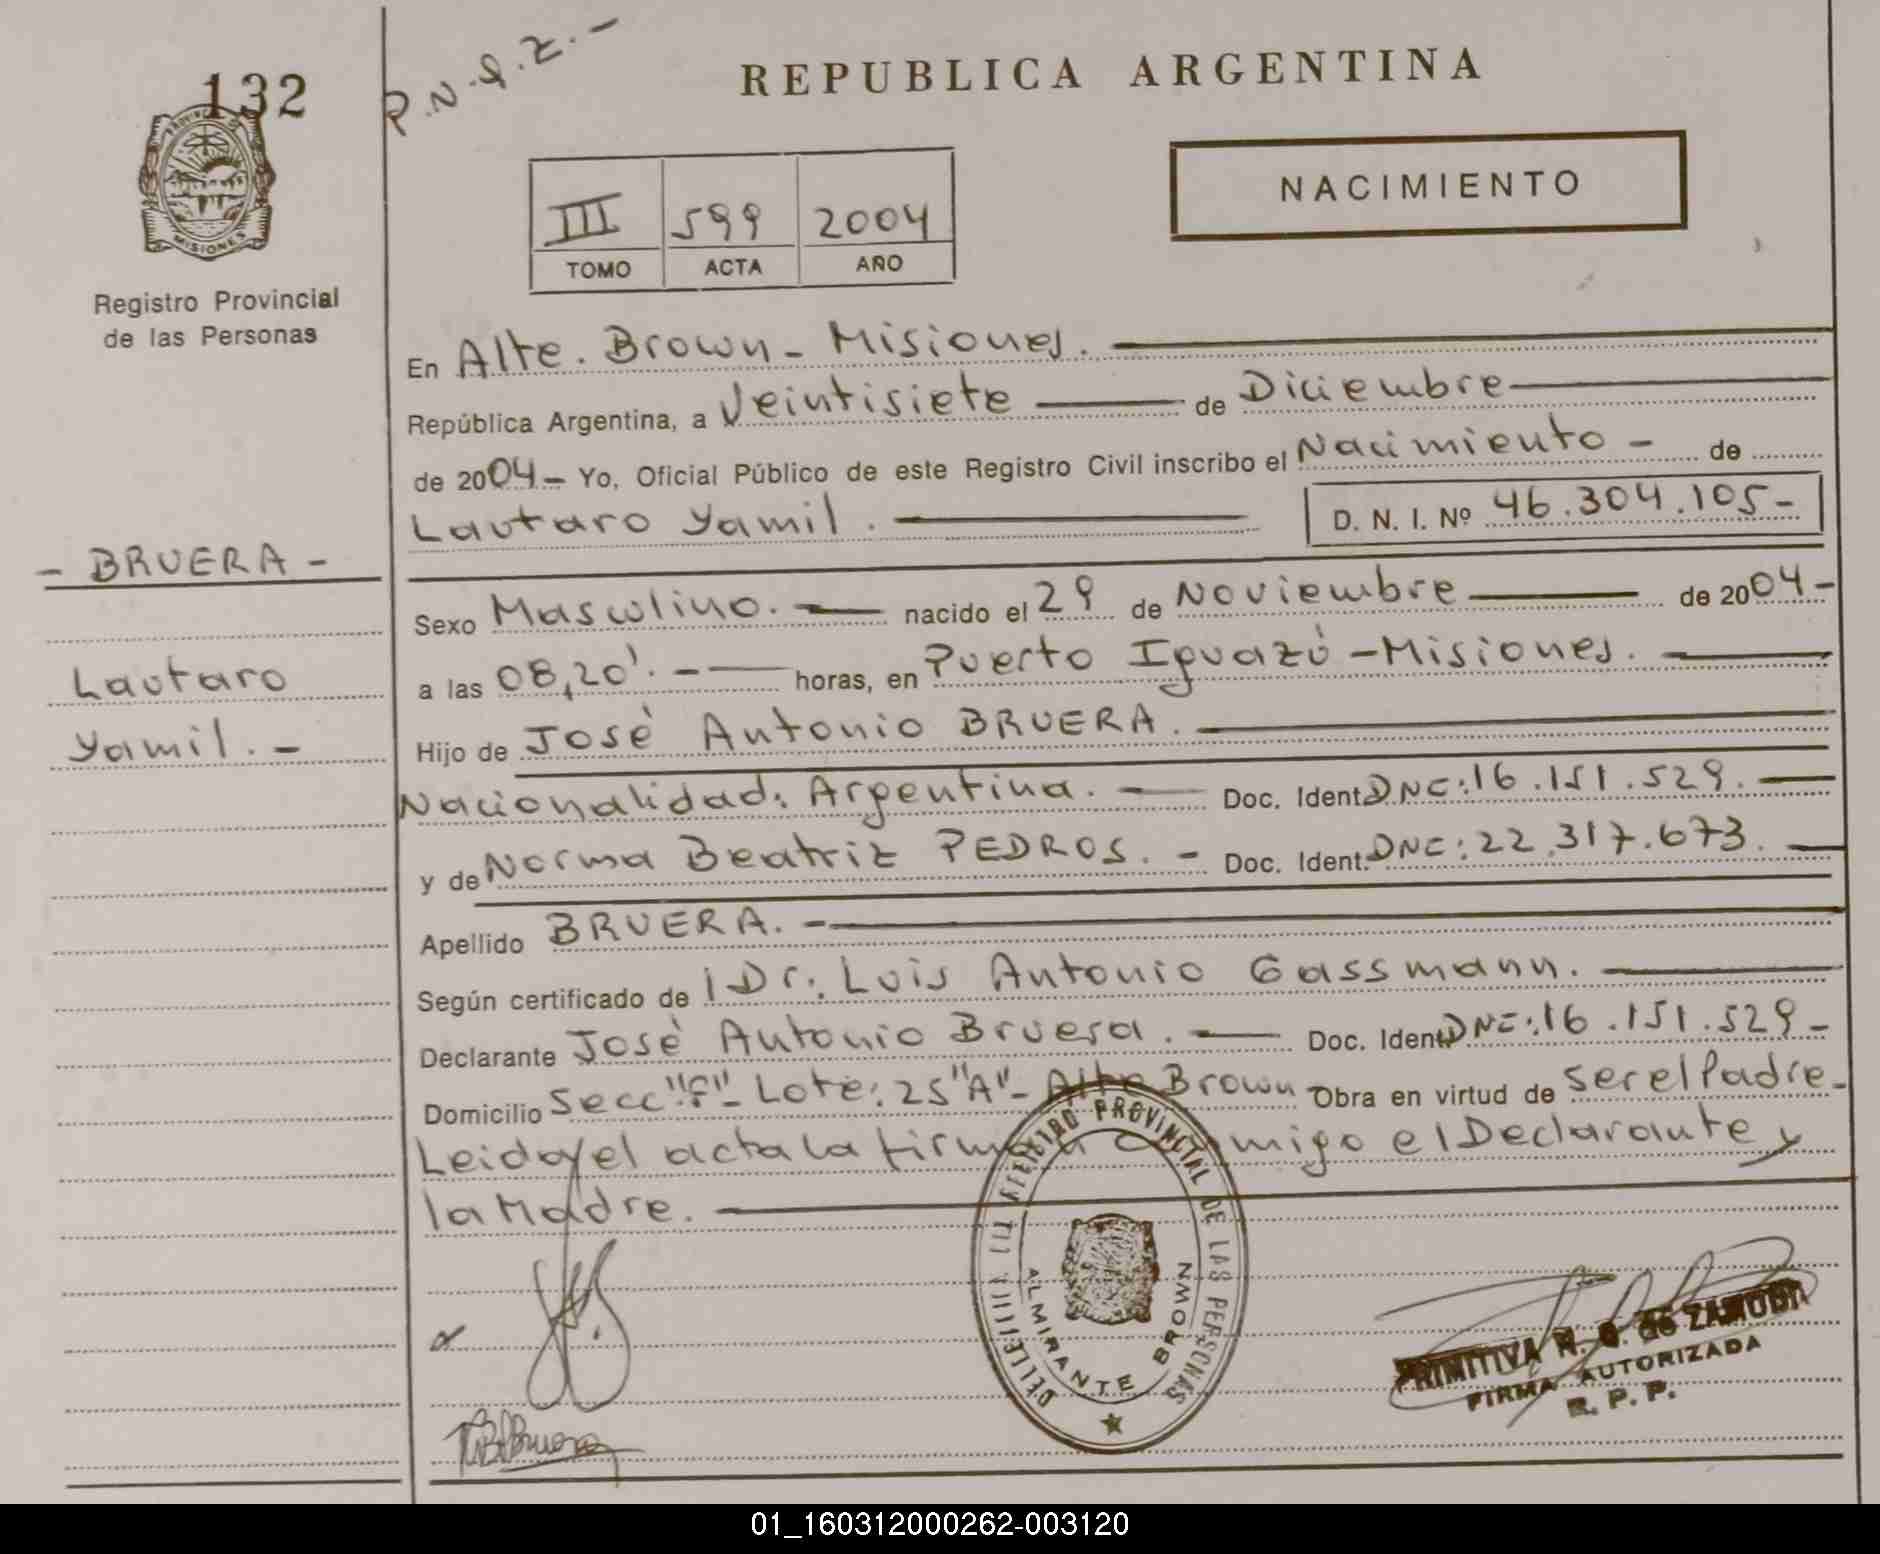 132
P.N.Q.Z.-
REPUBLICA ARGENTINA
NACIMIENTO
III 599 2004
TOMO ACTA AÑO
PROVINCIA DE
MISIONES
Registro Provincial
de las Personas
En Alte. Brown - Misiones.
República Argentina, a Veintisiete de Diciembre
de 2004- Yo, Oficial Público de este Registro Civil inscribo el Nacimiento - de
Lautaro Yamil. D. N. I. Nº 46.304.105-
- BRUERA -
Lautaro
Yamil. -
Sexo Masculino. nacido el 29 de Noviembre de 2004-
a las 08,20'. horas, en Puerto Iguazú - Misiones.
Hijo de José Antonio BRUERA.
Nacionalidad: Argentina. Doc. Ident. DNE: 16.151.529.
y de Norma Beatriz PEDROS. - Doc. Ident. DNE: 22.317.673.
Apellido BRUERA. -
Según certificado de Dr. Luis Antonio Gassmann.
Declarante José Antonio Bruera. Doc. Ident DNE: 16.151.529-
Domicilio Secc "F"- Lote: 25 "A"- Alte Brown Obra en virtud de ser el Padre-
Leida el acta la firman conmigo el Declarante y
la Madre.
REGISTRO PROVINCIAL DE LAS PERSONAS
ALMIRANTE BROWN
PRIMITIVA N. G. de ZAMUDI
FIRMA AUTORIZADA
R. P. P.
01_160312000262-003120